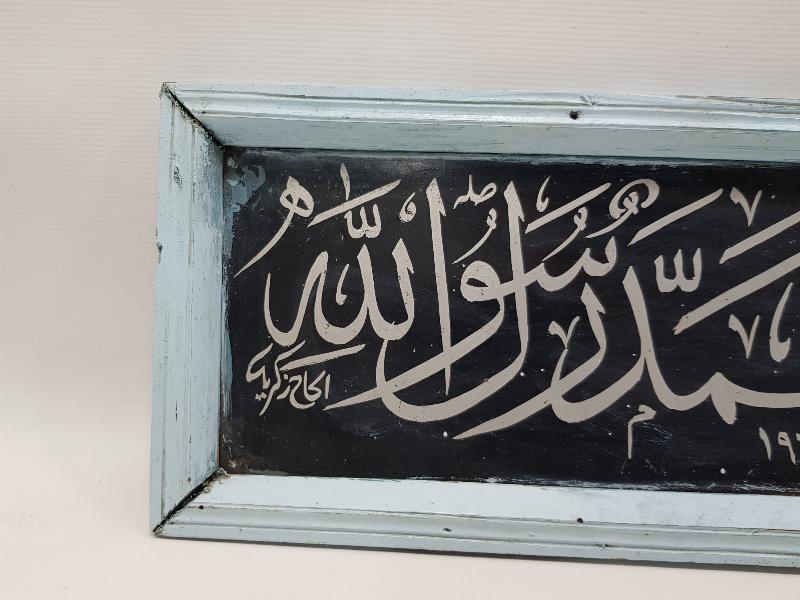 محمد رسول الله
الحاج زكريا